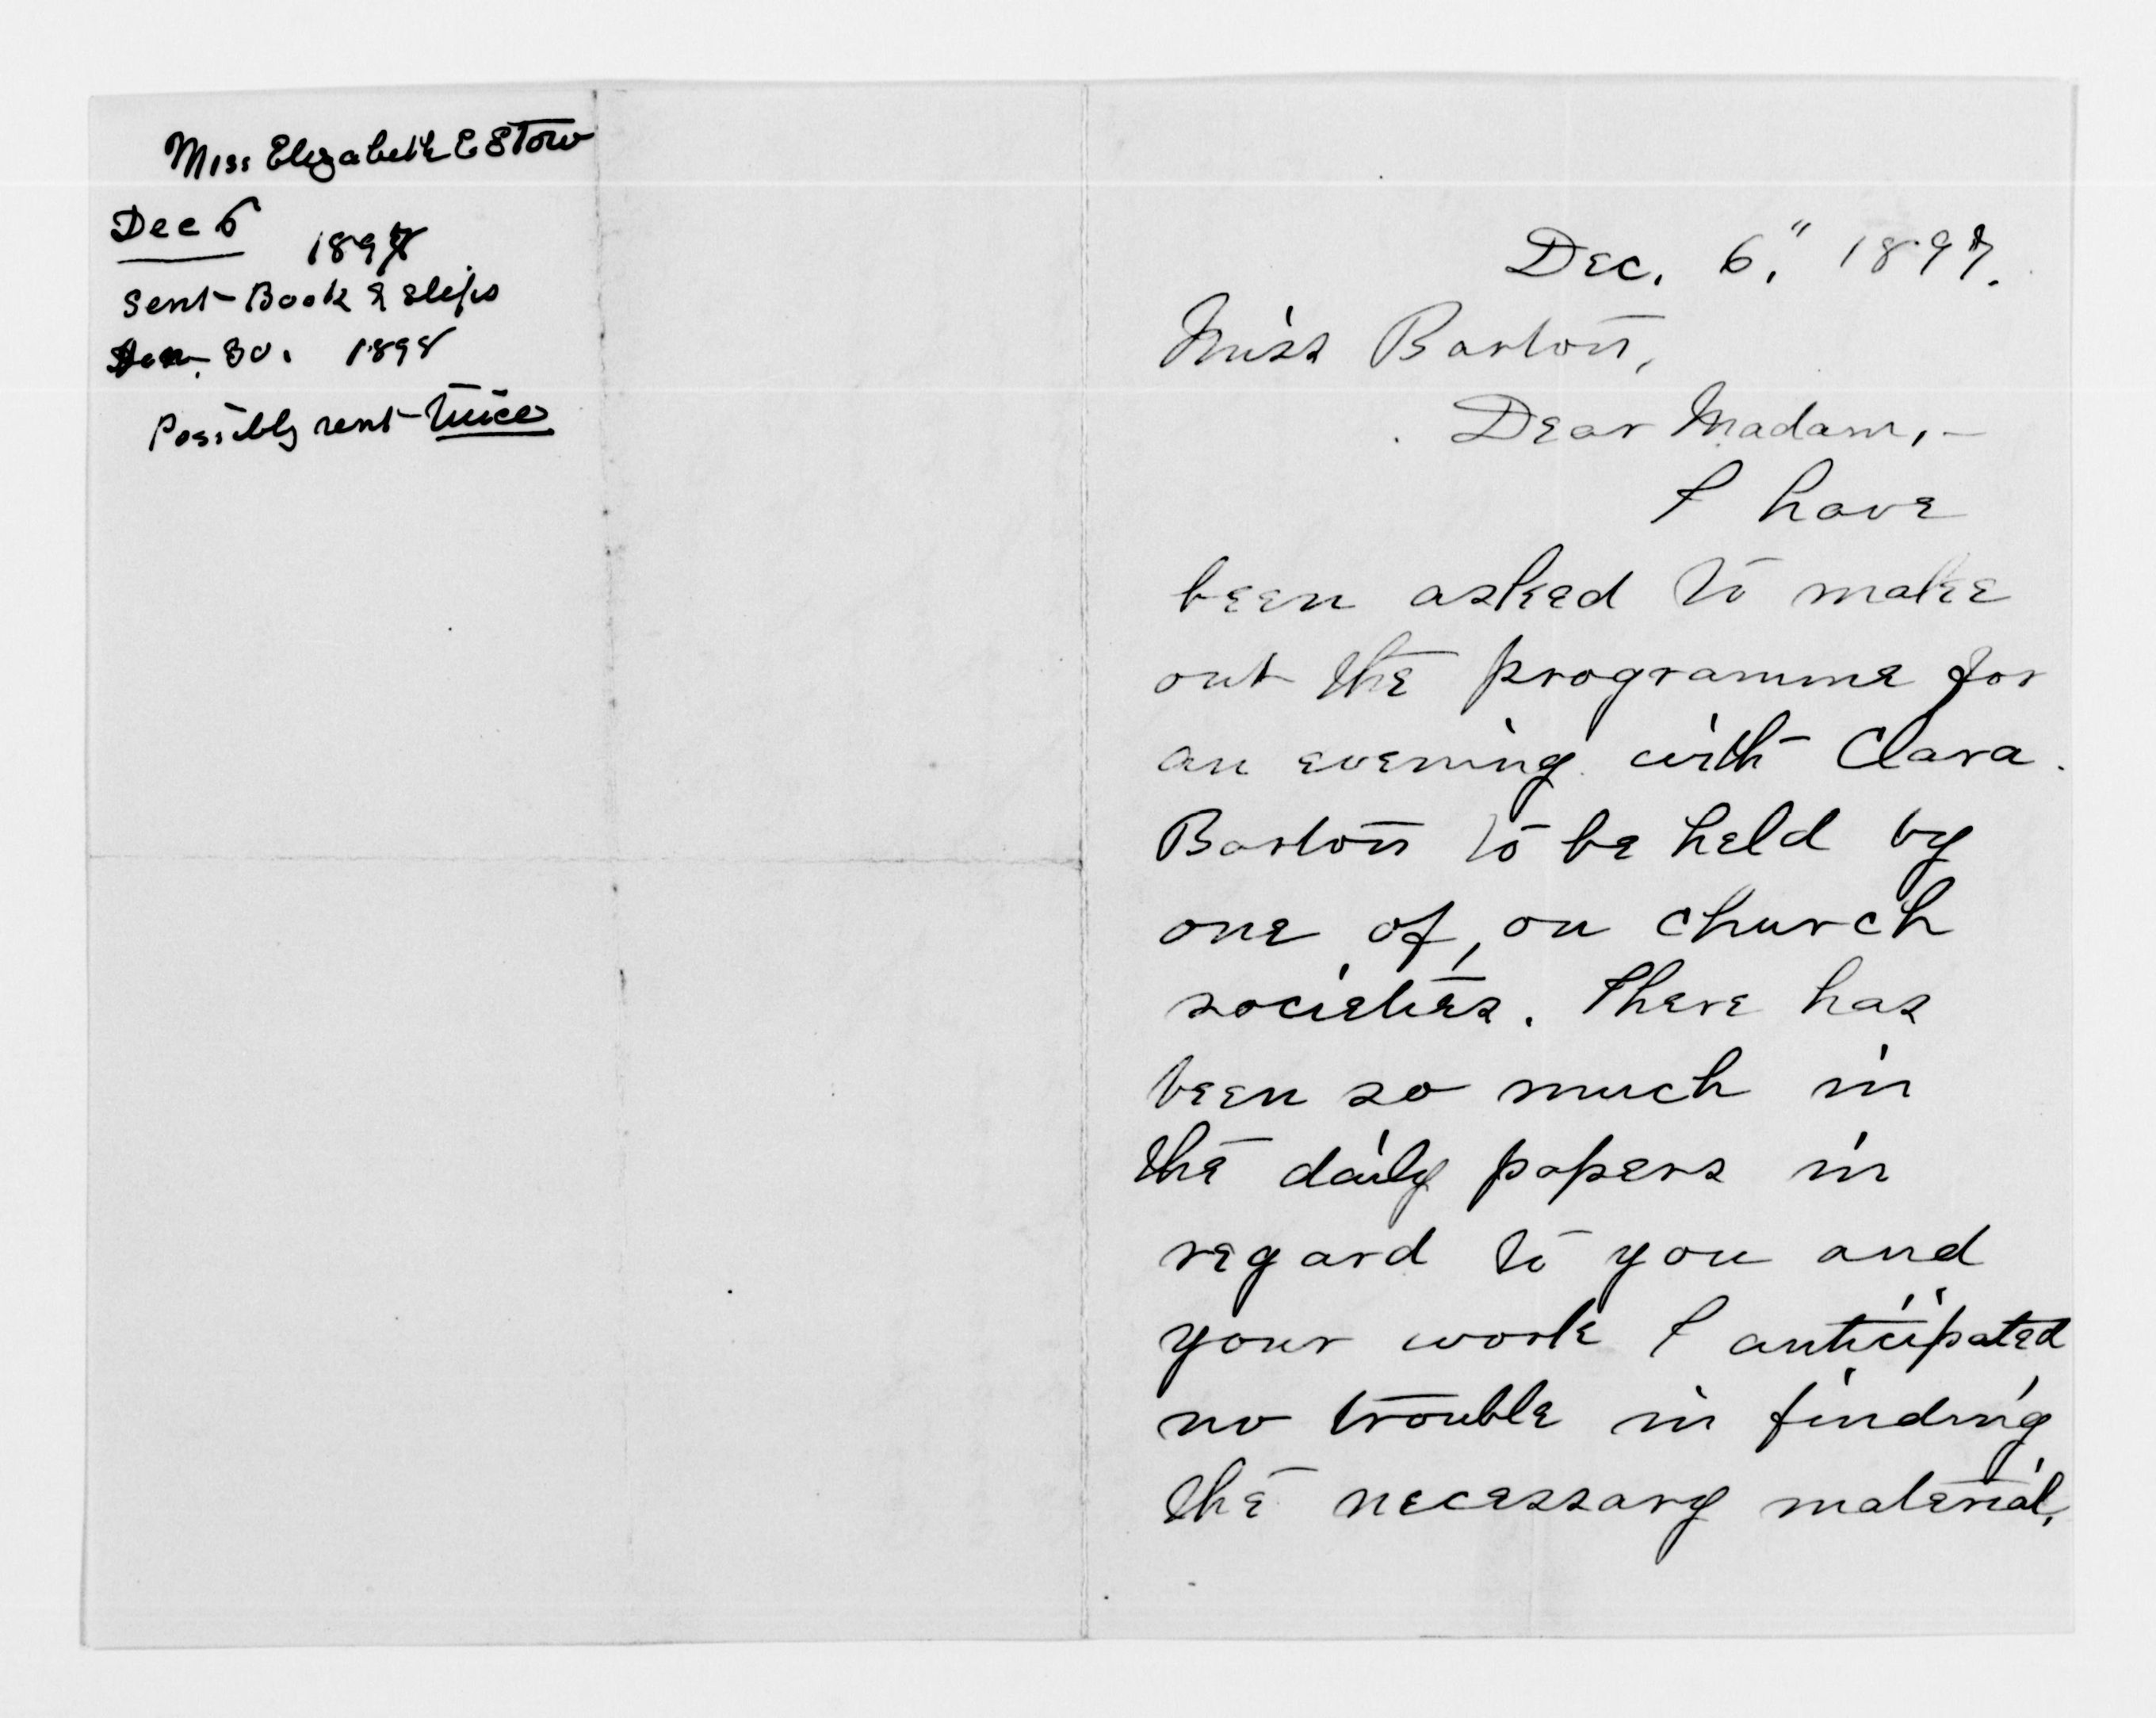 Miss Elizabeth E Stow
Dec 6
1897
Sent Book & slips
Jan. 30. 1898
Possibly sent twice
Dec. 6," 1897.
Miss Barton,
Dear Madam,-
I have
been asked to make
out the programme for
an evening with Clara
Barton to be held by
one of, ou church
societies. There has
been so much in
the daily papers in
regard to you and
your work I anticipated
no trouble in finding
the necessary material,